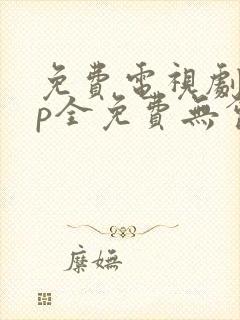 免費電視劇
p全免費無
糜嫵